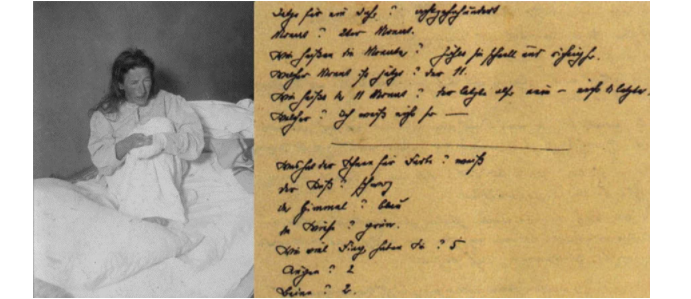 Jetzt für ein Jahr? achtzehnhundert
Monat? Über Monat.
Wie heißen die Monate? zählt sie schnell und richtig
Welcher Monat ist jetzt? der 11.
Wie heißt der 11 Monat? der letzte also nein – nicht der letzte.
Welcher? ich weiß nicht so —
Was hat der Schnee für Farbe? weiß
der Ruß? schwarz
der Himmel? blau
die Wiese? grün.
Wie viel Finger haben Sie? 5
Augen? 2
Beine? 2.